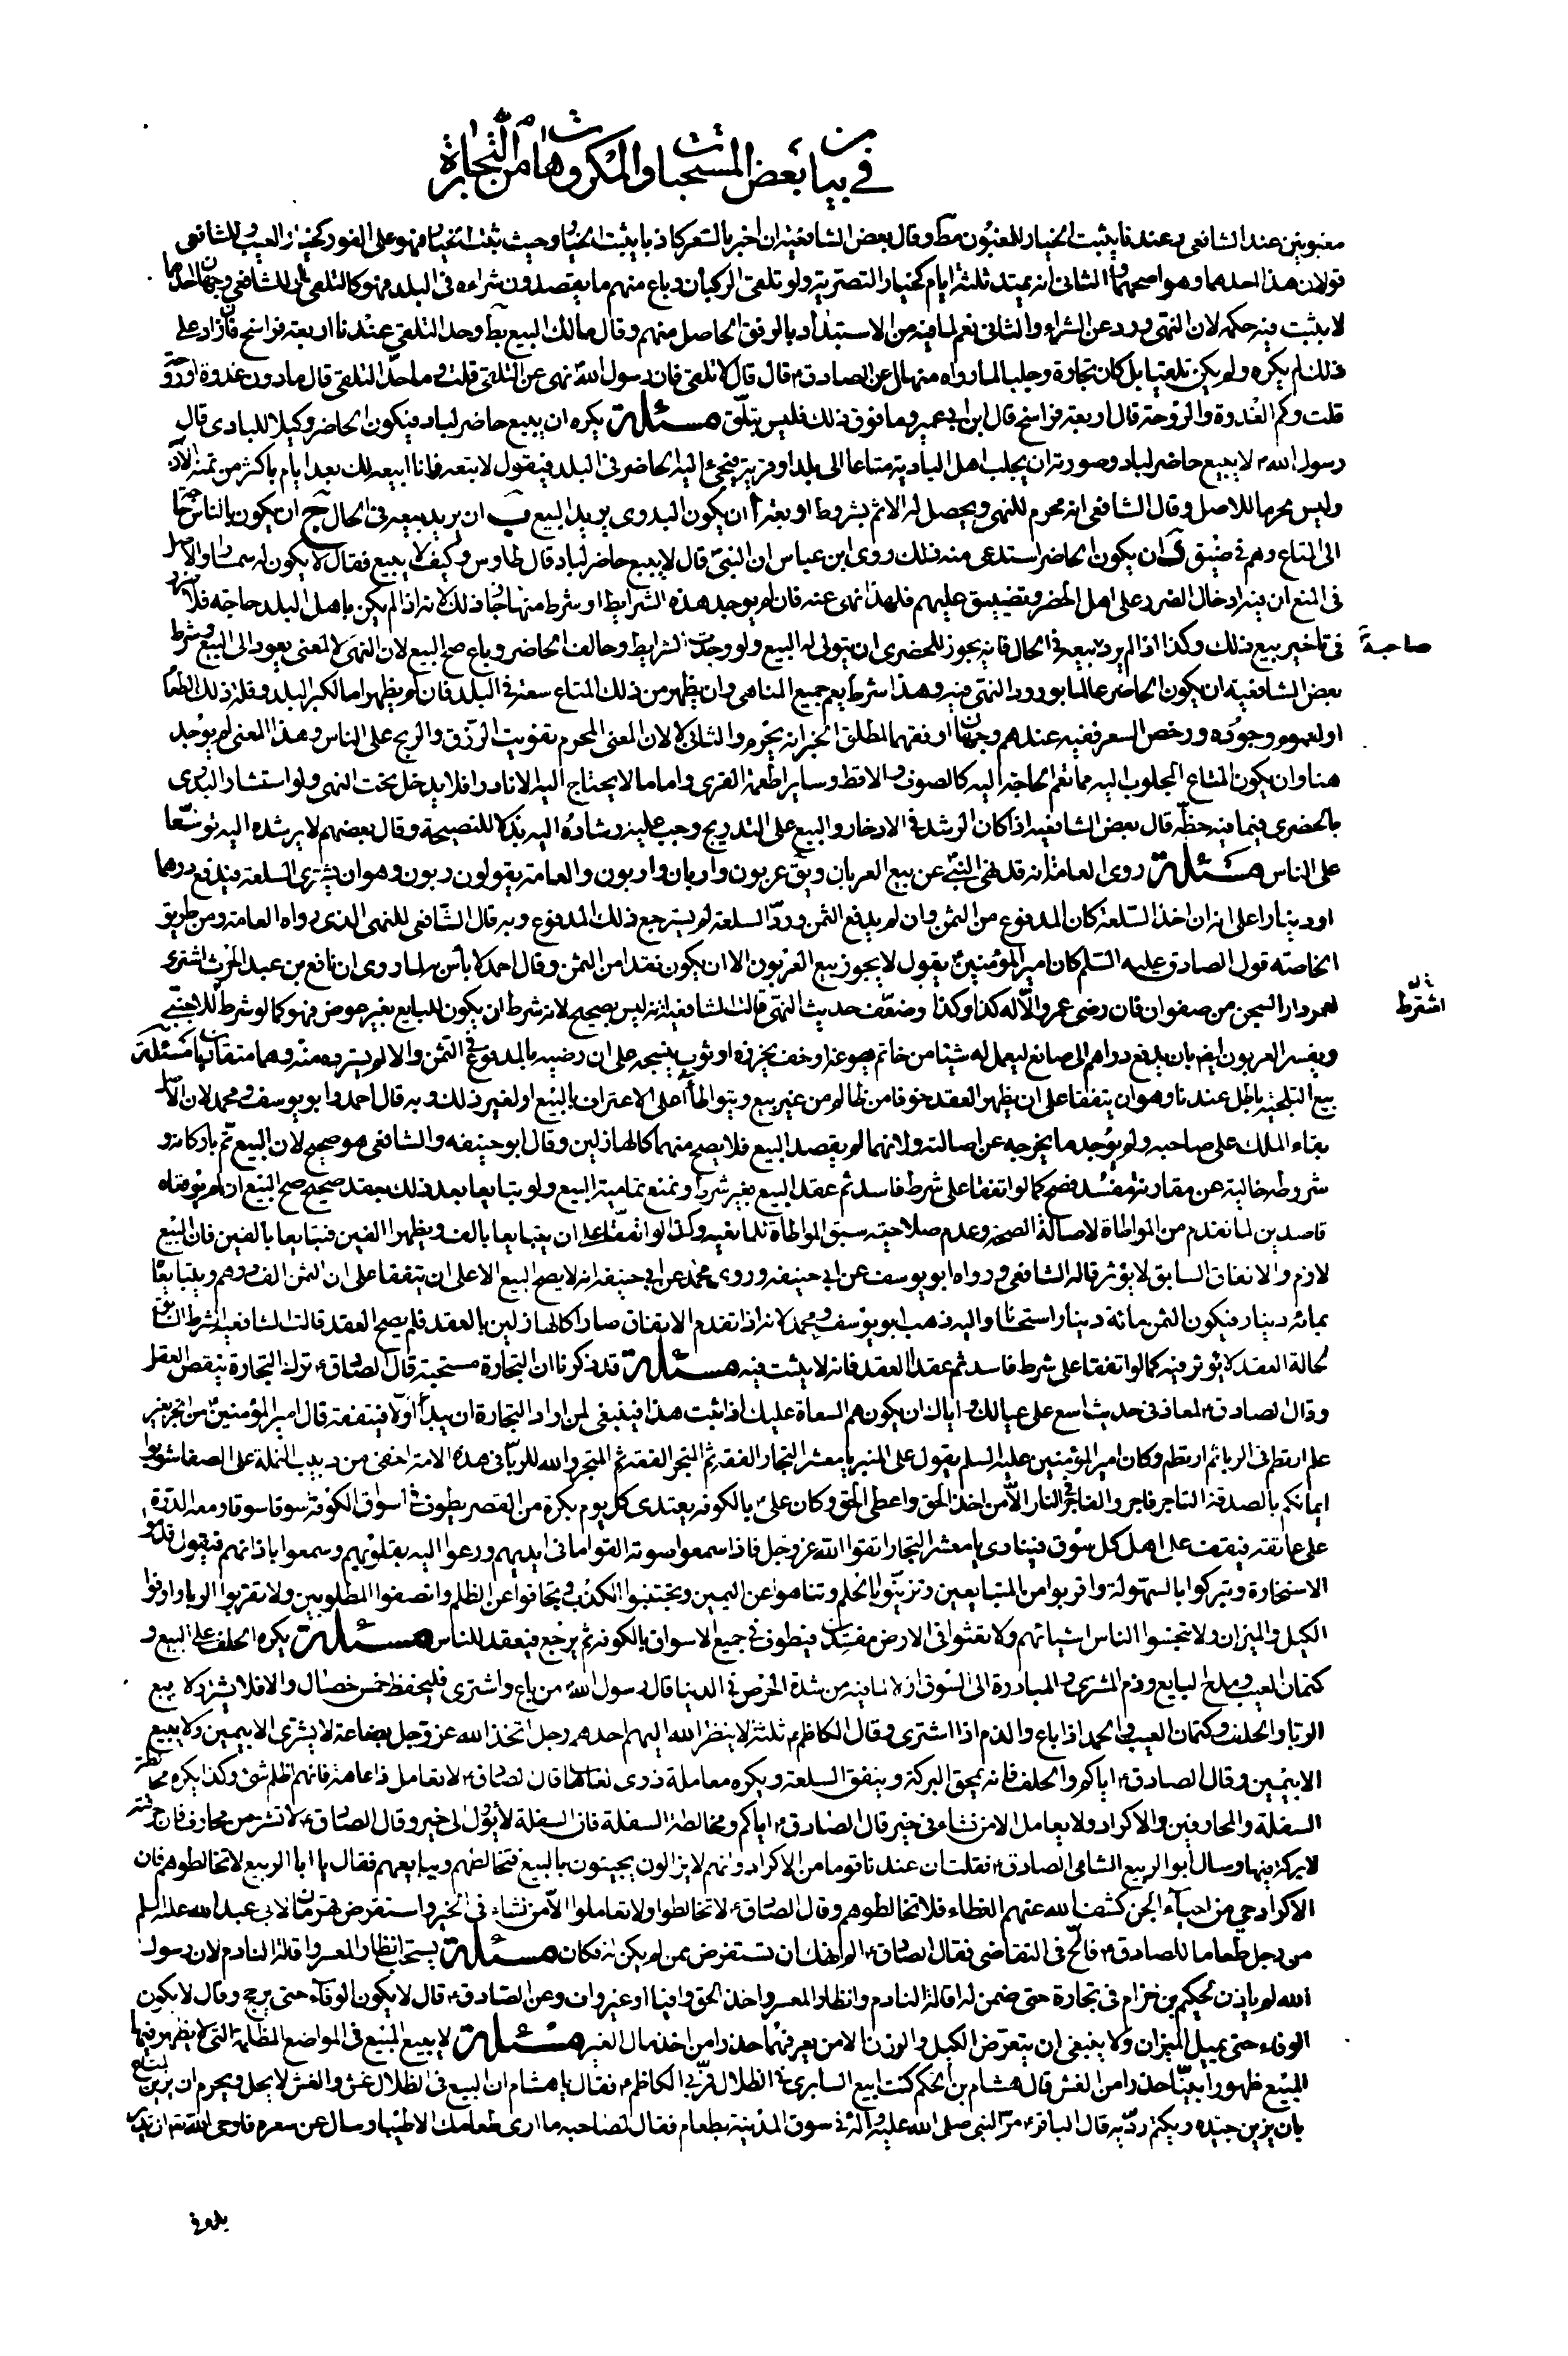 في بيان بعض المستحبات والمكروهات من التجارة
مغبونين عند الشافعي وعندنا يثبت الخيار للمغبون مط وقال بعض الشافعية ان اخبر بالسعر كاذبا يثبت الخيار وحيث يثبت الخيار فهو على الفور كخيار العيب وللشافعي
قولان هذا احدهما وهو اصحهما والثاني انه يمتد ثلثة ايام كخيار التصرية ولو تلقى الركبان وباع منهم ما يقصدون شراءه في البلد فهو كالتلقي للشافعي وجهان احدهما
لا يثبت فيه حكمه لان النهي ورد عن الشراء والثاني نعم لما فيه من الاستبداد بالرفق الحاصل منهم وقال مالك البيع بط وحد التلقي عندنا اربعة فراسخ فان زاد على
ذلك لم يكره ولم يكن تلقيا بل كان تجارة وجلبا لما رواه منهال عن الصادق ع قال قال لا تلقى فان رسول الله ص نهى عن التلقي قلت وما حد التلقي قال ما دون غدوة او روحة
قلت وكم الغدوة والروحة قال اربعة فراسخ قال ابن ابي عمير وما فوق ذلك فليس بتلق مسئلة يكره ان يبيع حاضر لباد فيكون الحاضر وكيلا للبادي قال
رسول الله ص لا يبيع حاضر لباد وصورته ان يجلب اهل البادية متاعا الى بلد او قرية فيجيء اليه الحاضر في البلد فيقول لا تبعه فانا ابيعه لك بعد ايام باكثر من ثمنه الان
وليس محرما للاصل وقال الشافعي انه محرم للنهي ويحصل له الاثم بشروط اربعة أ ان يكون البدوي يريد البيع ب ان يريد بيعه في الحال ج ان يكون بالناس حاجة
الى المتاع وهم في ضيق د ان يكون الحاضر استدعى منه ذلك روى ابن عباس ان النبي ص قال لا يبيع حاضر لباد قال طاوس وكيف لا يبيع فقال لا يكون له سمسارا والاصل
في المنع ان فيه ادخال الضرر على اهل الحضر وتضييق عليهم فلهذا نهى عنه فان لم يوجد هذه الشرايط او شرط منها جاز ذلك لانه اذا لم يكن باهل البلد حاجة فلا ضرر
في تاخير بيع ذلك وكذا اذا لم يرد بيعه في الحال فانه يجوز للحضري ان يتولى له البيع ولو وجدت الشرايط وخالف الحاضر وباع صح البيع لان النهي لا لمعنى يعود الى البيع وشرط
صاحبه
بعض الشافعية ان يكون الحاضر عالما بورود النهي فيه وهذا شرط يعم جميع المناهي وان يظهر من ذلك المتاع سعة في البلد فان لم يظهر اما لكبر البلد وقلة ذلك الطعام
او لعموم وجوده ورخص السعر ففيه عندهم وجهان اوفقهما لمطلق الخبر انه يحرم والثاني لا لان المعنى المحرم تفويت الرزق والربح على الناس وهذا المعنى لم يوجد
هنا وان يكون المتاع المجلوب اليه مما تعم الحاجة اليه كالصوف والاقط وساير اطعمة القرى واما ما لا يحتاج اليه الا نادرا فلا يدخل تحت النهي ولو استشار البدوي
بالحضري فيما فيه حظه قال بعض الشافعية اذا كان الرشد في الادخار والبيع على التدريج وجب عليه رشاده اليه بذلا للنصيحة وقال بعضهم لا يرشده اليه توسعا
على الناس مسئلة روى العامة انه قد نهى النبي ص عن بيع العربان ويق عربون واربان واربون والعامة يقولون ربون وهو ان يشترى السلعة فيدفع درهما
او دينارا على انه ان اخذ السلعة كان المدفوع من الثمن وان لم يدفع الثمن وردّ السلعة لم يسترجع ذلك المدفوع وبه قال الشافعي للنهي الذي رواه العامة ومن طريق
الخاصة قول الصادق عليه السلم كان امير المؤمنين ع يقول لا يجوز بيع العربون الا ان يكون نقدا من الثمن وقال احمد لا باس به لما روى ان نافع بن عبد الحرث اشترى
لعمر دار السجن من صفوان فان رضى عمر والا له كذا وكذا وضعف حديث النهي قالت الشافعية انه ليس بصحيح لانه شرط ان يكون للبايع بغير عوض فهو كما لو شرط للاجنبي
اشترط
ويفسر العربون ايض بان يدفع دراهم الى صانع ليعمل له شيئا من خاتم يصوغه او خف يخرزه او ثوب ينسجه على ان رضيه بالمدفوع في الثمن والا لم يسترده منه وهما متقاربان مسئلة
بيع التلجئة باطل عندنا وهو ان يتفقا على ان يظهر العقد خوفا من ظالم من غير بيع ويتواطأا على الاعتراف بالبيع او لغير ذلك وبه قال احمد وابو يوسف ومحمد لان الاصل
بقاء الملك على صاحبه ولم يوجد ما يخرجه عن اصالته ولانهما لم يقصدا البيع فلا يصح منهما كالهازلين وقال ابو حنيفه والشافعي هو صحيح لان البيع تم باركانه و
شروطه خالية عن مقارنة مفسد فصح كما لو اتفقا على شرط فاسد ثم عقدا البيع بغير شرط ونمنع تمامية البيع ولو تبايعا بعد ذلك بعقد صحيح صح البيع ان لم يوقعاه
قاصدين لما تقدم من المواطاة لاصالة الصحة وعدم صلاحية سبق المواطاة للمانعية وكذا لو اتفقا على ان يتبايعا بالف ويظهرا الفين فتبايعا بالفين فان البيع
لازم والاتفاق السابق لا يؤثر قاله الشافعي ورواه ابو يوسف عن ابي حنيفة وروى محمد عن ابي حنيفه انه لا يصح البيع الا على ان يتفقا على ان الثمن الف درهم ويتبايعا
بمائة دينار فيكون الثمن مائة دينار استحسانا واليه ذهب ابو يوسف ومحمد لانه اذا تقدم الاتفاق صارا كالهازلين بالعقد فلم يصح العقد قالت الشافعية الشرط السابق
لحالة العقد لا يؤثر فيه كما لو اتفقا على شرط فاسد ثم عقدا العقد فانه لا يثبت فيه مسئلة قد ذكرنا ان التجارة مستحبة قال الصادق ع ترك التجارة ينقص العقل
وقال الصادق ع لمعاذ في حديث اسع على عيالك واياك ان يكون هم السعاة عليك اذا ثبت هذا فينبغي لمن اراد التجارة ان يبدأ اولا فيتفقه قال امير المؤمنين ع من اتجر بغير
علم ارتطم في الربا ثم ارتطم وكان امير المؤمنين عليه السلم يقول على المنبر يا معشر التجار الفقه ثم المتجر الفقه ثم المتجر والله للربا في هذه الامة اخفى من دبيب النملة على الصفا شوبوا
ايمانكم بالصدقة التاجر فاجر والفاجر في النار الا من اخذ الحق واعطى الحق وكان علي ع بالكوفه يغتدى كل يوم بكرة من القصر يطوف في اسواق الكوفة سوقا سوقا ومعه الدرة
على عاتقه فيقف على اهل كل سوق فينادى يا معشر التجار اتقوا الله عز وجل فاذا سمعوا صوته القوا ما في ايديهم ورعوا اليه بقلوبهم وسمعوا باذانهم فيقول قدموا
الاستخارة وتبركوا بالسهولة واقربوا من المتبايعين وتزينوا بالحلم وتناهوا عن اليمين وتجنبوا الكذب وتجافوا عن الظلم وانصفوا المظلومين ولا تقربوا الربا واوفوا
الكيل والميزان ولا تبخسوا الناس اشيائهم ولا تعثوا في الارض مفسدين فيطوف في جميع الاسواق بالكوفه ثم يرجع فيقعد للناس مسئلة يكره الحلف على البيع و
كتمان العيب ومدح البايع وذم المشترى والمبادرة الى السوق اولا لما فيه من شدة الحرص في الدنيا قال رسول الله ص من باع واشترى فليحفظ خمس خصال والا فلا يشتر ولا يبيع
الربا والحلف وكتمان العيب والحمد اذا باع والذم اذا اشترى وقال الكاظم ع ثلثة لا ينظر الله اليهم احدهم رجل اتخذ الله عز وجل بضاعة لا يشترى الا بيمين ولا يبيع
الا بيمين وقال الصادق ع اياكم والحلف فانه يمحق البركة وينفق السلعة ويكره معاملة ذوى العاهات قال الصادق ع لا تعامل ذا عاهة فانهم اظلم شيء وكذا يكره مخالطة
السفلة والمحارفين والاكراد ولا يعامل الا من نشاء في خير قال الصادق ع اياكم ومخالطة السفلة فان السفلة لا يؤل الى خير وقال الصادق ع لا تشتر من محارف فان حرفته
لا بركة فيها وسال ابو الربيع الشامي الصادق ع فقلت ان عندنا قوما من الاكراد وانهم لا يزالون يجيئون بالبيع فنخالطهم ونبايعهم فقال يا ابا الربيع لا تخالطوهم فان
الاكراد حي من احياء الجن كشف الله عنهم الغطاء فلا تخالطوهم وقال الصادق ع لا تخالطوا ولا تعاملوا الا من نشاء في الخير واستقرض قهرمان لابي عبد الله عليه السلم
من رجل طعاما للصادق ع فالح في التقاضي فقال الصادق ع الم انهك ان تستقرض ممن لم يكن له فكان مسئلة يستحب انظار المعسر واقالة النادم لان رسول
الله لم ياذن لحكيم بن حزام في تجارة حتى ضمن له اقالة النادم وانظار المعسر واخذ الحق وافيا او غير واف وعن الصادق ع قال لا يكون الوفاء حتى يرجح وقال لا يكون
الوفاء حتى يميل الميزان ولا ينبغي ان يتعرض الكيل والوزن الا من يعرفهما حذرا من اخذ مال الغير مسئلة لا يبيع المبيع في المواضع المظلمة التي لا يظهر فيها
المبيع ظهورا بينا حذرا من الغش قال هشام بن الحكم كنت ابيع السابرى في الظلال فمر بي الكاظم ع فقال يا هشام ان البيع في الظلال غش والغش لا يحل ويحرم ان يزين المتاع
بان يزين جيده ويكتم رديه قال الباقر ع مر النبي صلى الله عليه وآله في سوق المدينة بطعام فقال لصاحبه ما ارى طعامك الا طيبا وسال عن سعره فاوحى الله تع ان يدس
يده في